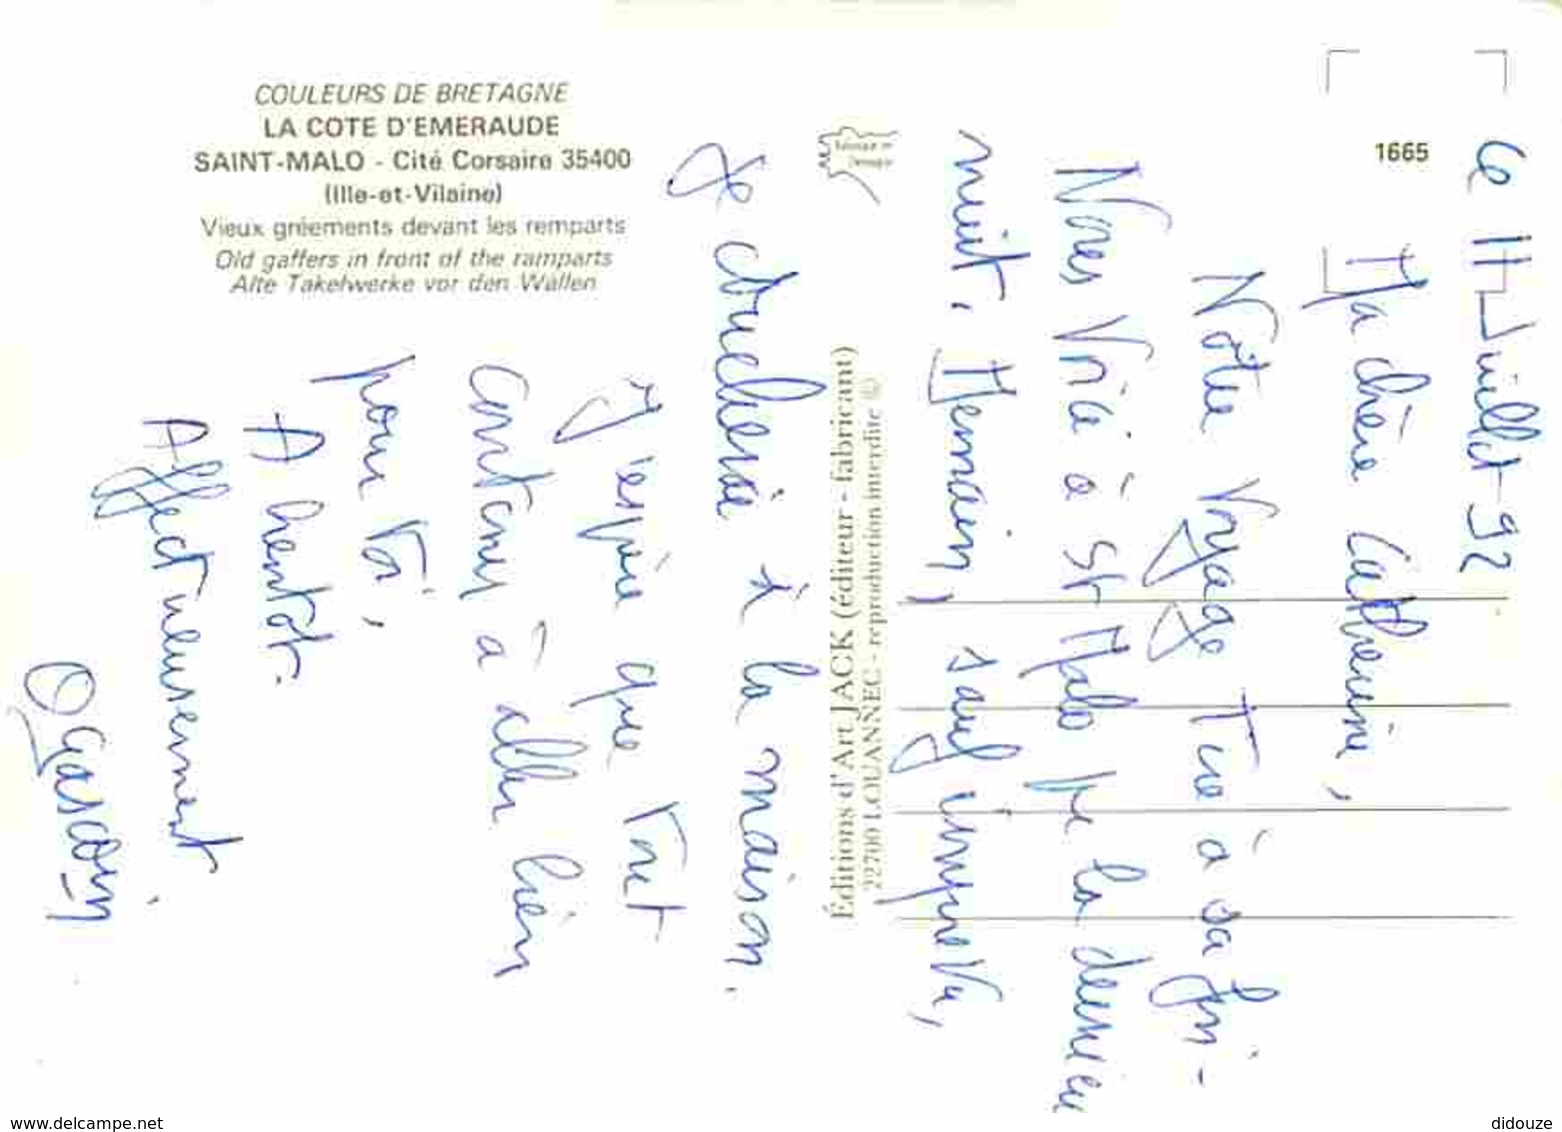 COULEURS DE BRETAGNE
LA COTE D'EMERAUDE
SAINT-MALO - Cité Corsaire 35400
(Ille-et-Vilaine)
Vieux gréements devant les remparts
Old gaffers in front of the ramparts
Alte Takelwerke vor den Wällen
1665
Éditions d'Art JACK (éditeur - fabricant)
22700 LOUANNEC - reproduction interdite ©
Juillet 92
Ma chère Catherine,
Notre Voyage Tire à sa fin -
Nous Voici à St Malo pr la dernière
nuit. Demain, sauf imprévu,
Je coucherai à la maison.
J'espère que Tout
continue à aller bien
pour Toi,
A bientôt.
Affectueusement
O gascoin
www.delcampe.net
didouze